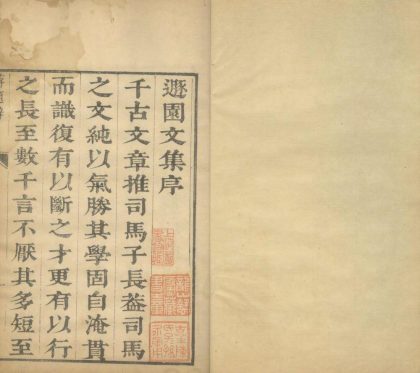 遯園文集序
千古文章推司馬子長葢司馬
之文純以氣勝其學固自淹貫
而識復有以斷之才更有以行
之長至數千言不厭其多短至